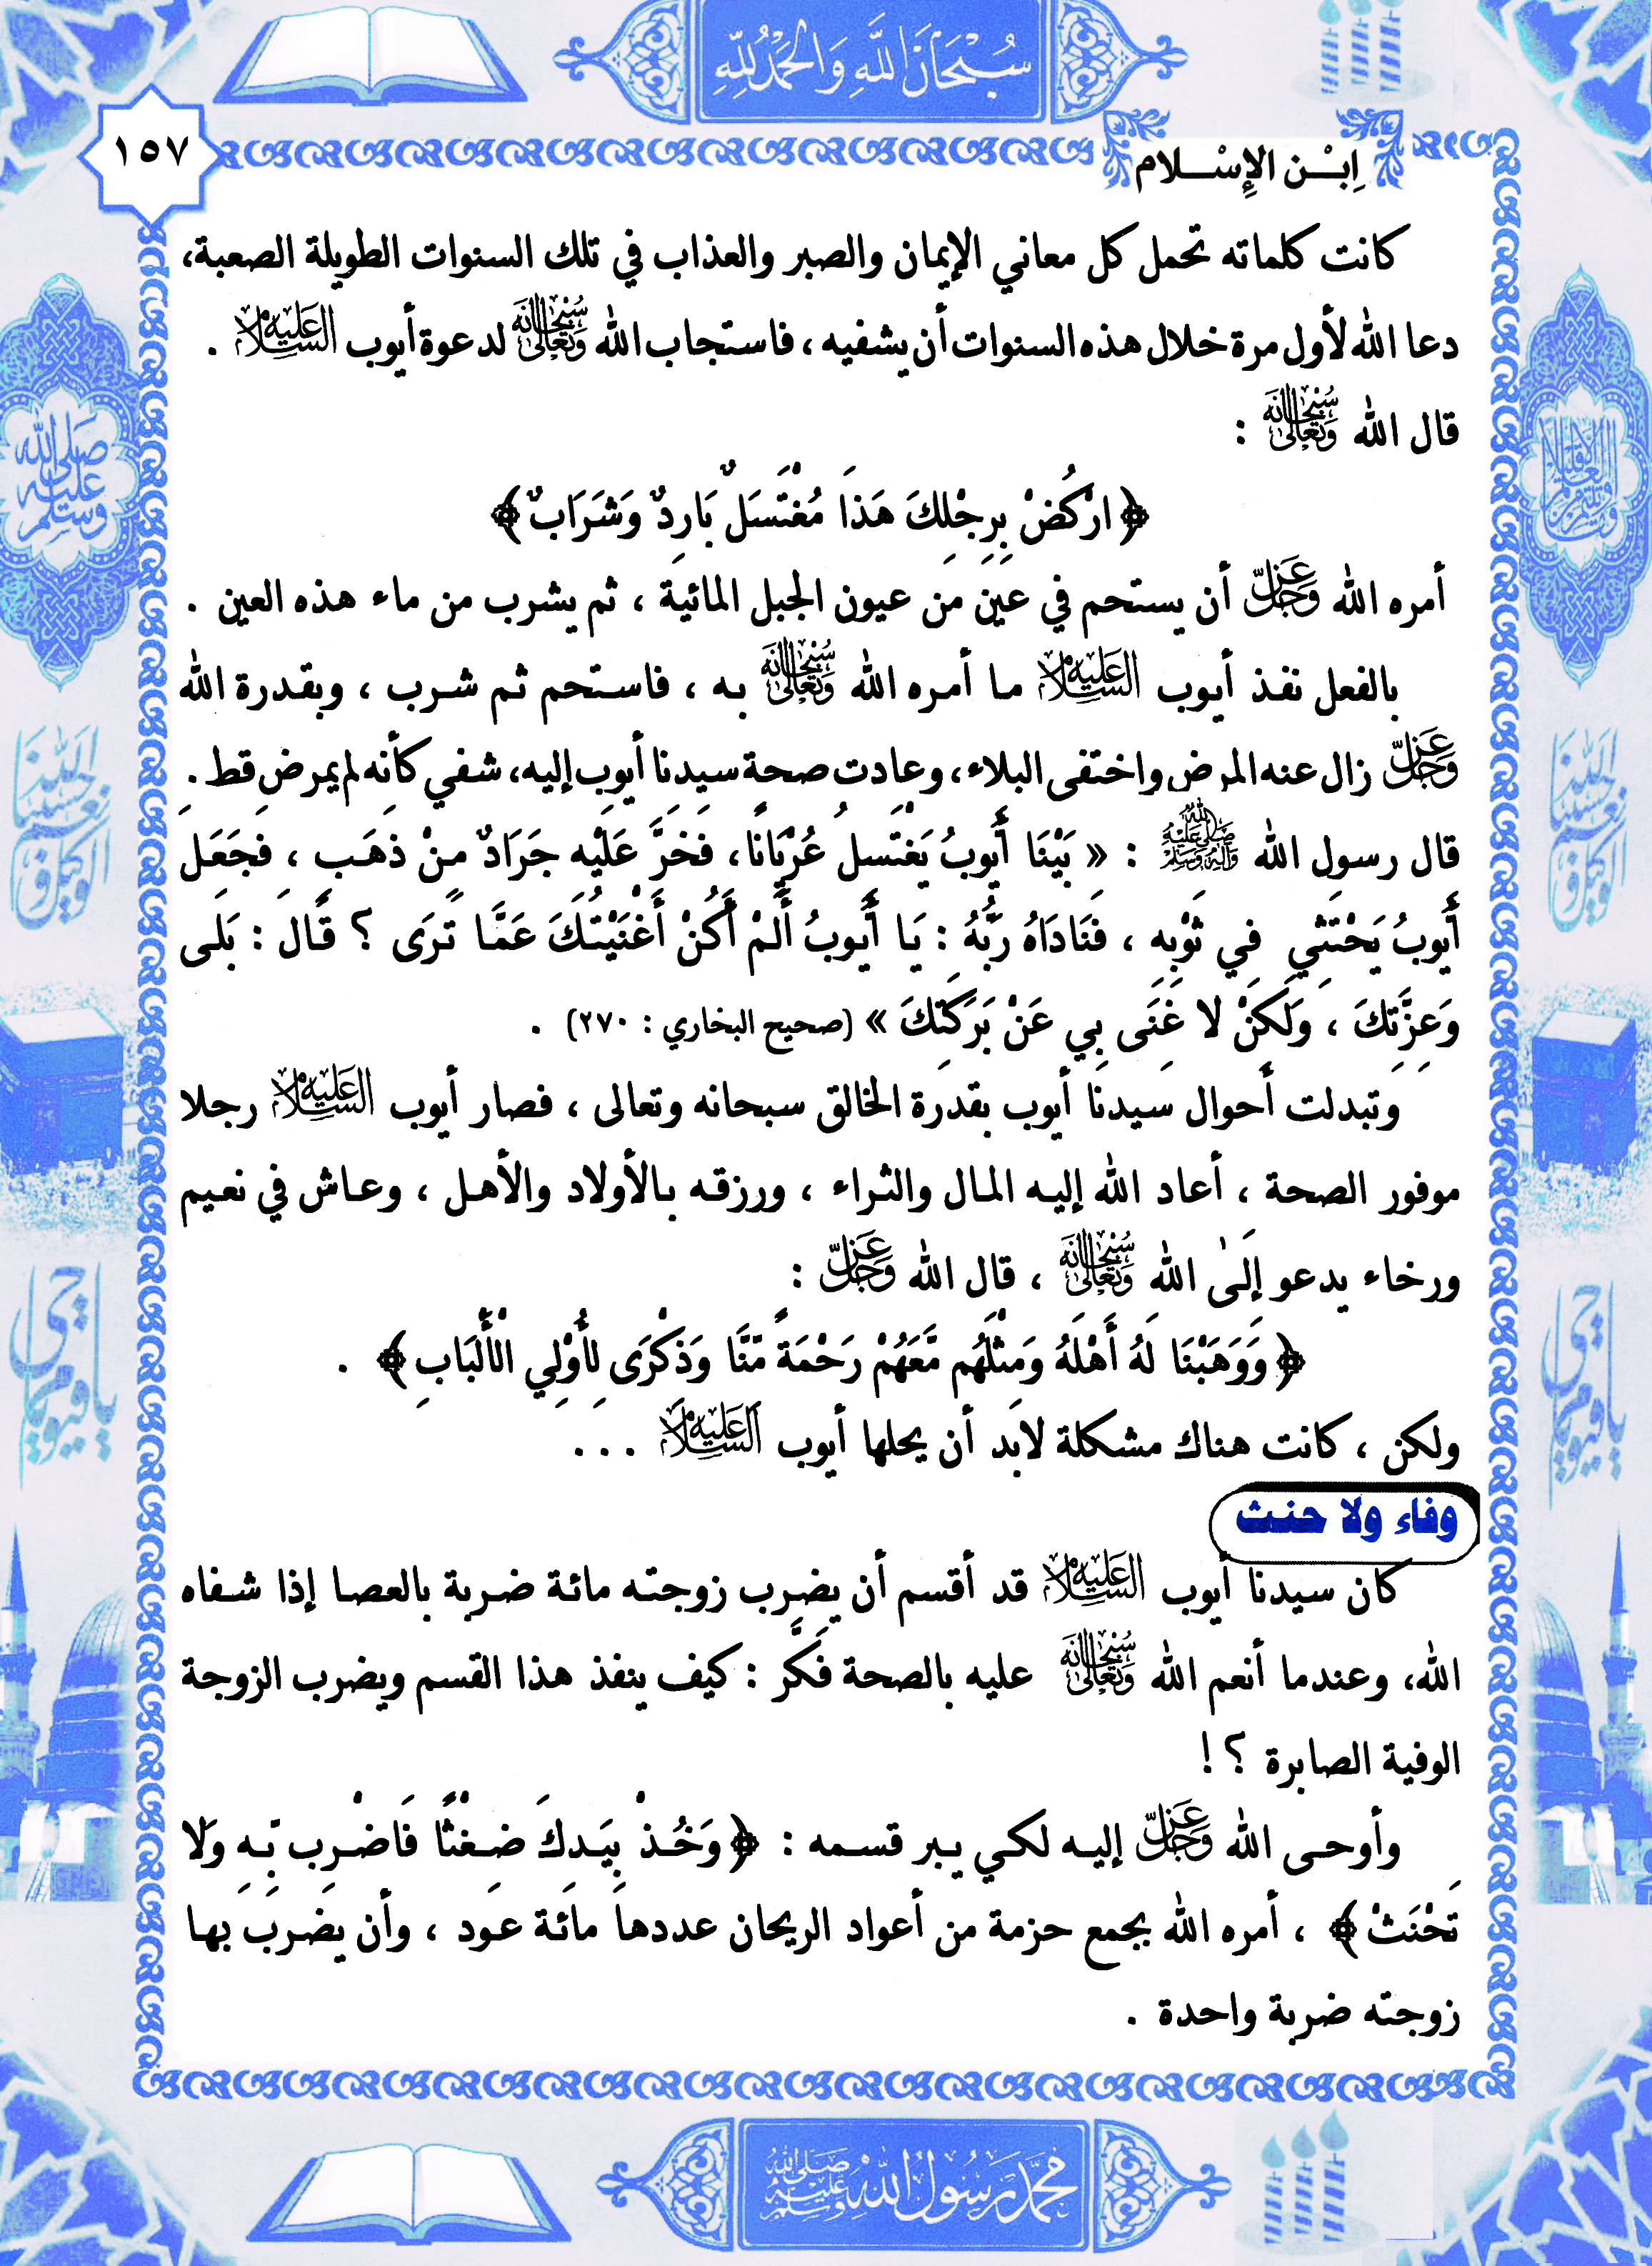 سُبْحَانَ اللَّهِ وَالْحَمْدُ لِلَّهِ
١٥٧
اِبْـن الإِسْـلام
كانت كلماته تحمل كل معاني الإيمان والصبر والعذاب في تلك السنوات الطويلة الصعبة،
دعا الله لأول مرة خلال هذه السنوات أن يشفيه ، فاستجاب الله سُبْحَانَهُ وَتَعَالَى لدعوة أيوب عَلَيْهِ السَّلَام .
قال الله سُبْحَانَهُ وَتَعَالَى :
﴿ ارْكُضْ بِرِجْلِكَ هَذَا مُغْتَسَلٌ بَارِدٌ وَشَرَابٌ ﴾
أمره الله عَزَّ وَجَلَّ أن يستحم في عين من عيون الجبل المائية ، ثم يشرب من ماء هذه العين .
بالفعل نفذ أيوب عَلَيْهِ السَّلَام ما أمره الله سُبْحَانَهُ وَتَعَالَى به ، فاستحم ثم شرب ، وبقدرة الله
عَزَّ وَجَلَّ زال عنه المرض واختفى البلاء، وعادت صحة سيدنا أيوب إليه، شفي كأنه لم يمرض قط .
قال رسول الله صلى الله عليه وآله وسلم : « بَيْنَا أَيُّوبُ يَغْتَسِلُ عُرْيَانًا، فَخَرَّ عَلَيْهِ جَرَادٌ مِنْ ذَهَبٍ ، فَجَعَلَ
أَيُّوبُ يَحْتَثِي فِي ثَوْبِهِ ، فَنَادَاهُ رَبُّهُ : يَا أَيُّوبُ أَلَمْ أَكُنْ أَغْنَيْتُكَ عَمَّا تَرَى ؟ قَالَ : بَلَى
وَعِزَّتِكَ ، وَلَكِنْ لا غِنَى بِي عَنْ بَرَكَتِكَ » (صحيح البخاري : ٢٧٠) .
وتبدلت أحوال سيدنا أيوب بقدرة الخالق سبحانه وتعالى ، فصار أيوب عَلَيْهِ السَّلَام رجلا
موفور الصحة ، أعاد الله إليه المال والثراء ، ورزقه بالأولاد والأهل ، وعاش في نعيم
ورخاء يدعو إِلَىٰ الله سُبْحَانَهُ وَتَعَالَى ، قال الله عَزَّ وَجَلَّ :
﴿ وَوَهَبْنَا لَهُ أَهْلَهُ وَمِثْلَهُم مَّعَهُمْ رَحْمَةً مِّنَّا وَذِكْرَى لِأُوْلِي الْأَلْبَابِ ﴾ .
ولكن ، كانت هناك مشكلة لابد أن يحلها أيوب عَلَيْهِ السَّلَام ...
وفاء ولا حنث
كان سيدنا أيوب عَلَيْهِ السَّلَام قد أقسم أن يضرب زوجته مائة ضربة بالعصا إذا شفاه
الله، وعندما أنعم الله سُبْحَانَهُ وَتَعَالَى عليه بالصحة فَكَّر : كيف ينفذ هذا القسم ويضرب الزوجة
الوفية الصابرة ؟ !
وأوحى الله عَزَّ وَجَلَّ إليه لكي يبر قسمه : ﴿ وَخُذْ بِيَدِكَ ضِغْثًا فَاضْرِب بِّهِ وَلَا
تَحْنَثْ ﴾ ، أمره الله بجمع حزمة من أعواد الريحان عددها مائة عود ، وأن يضرب بها
زوجته ضربة واحدة .
مُحَمَّد رَسُولُ اللَّه صَلَّى اللَّهُ عَلَيْهِ وَسَلَّم
صَلَّى اللَّه عَلَيْهِ وَسَلَّم
حَسْبُنَا اللَّهُ وَنِعْمَ الْوَكِيل
يا حي يا قيوم
حَسْبُنَا اللَّهُ وَنِعْمَ الْوَكِيل
يا حي يا قيوم